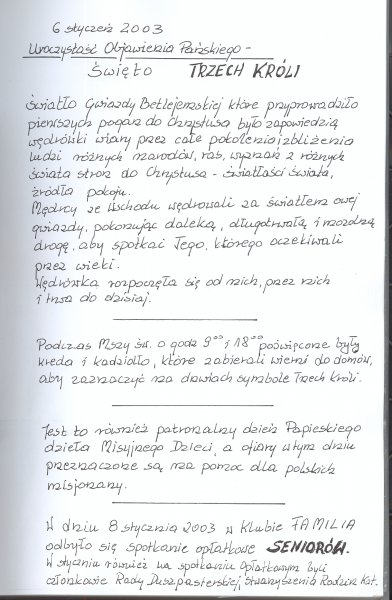 6 styczeń 2003
Uroczystość Objawienia Pańskiego –
Święto TRZECH KRÓLI
Światło Gwiazdy Betlejemskiej które przyprowadziło
pierwszych pogan do Chrystusa było zapowiedzią
wędrówki wiary przez całe pokolenia i zbliżenia
ludzi różnych narodów, ras, wyznań z różnych
świata stron do Chrystusa – światłości świata,
źródła pokoju.
Mędrcy ze Wschodu wędrowali za światłem owej
gwiazdy, pokonując daleką, długotrwałą i mozolną
drogę, aby spotkać Tego, którego oczekiwali
przez wieki.
Wędrówka rozpoczęła się od nich, przez nich
i trwa do dzisiaj.
Podczas Mszy św. o godz 9⁰⁰ i 18⁰⁰ poświęcone były
kreda i kadzidło, które zabierali wierni do domów,
aby zaznaczyć na drzwiach symbole Trzech Króli.
Jest to również patronalny dzień Papieskiego
dzieła Misyjnego Dzieci, a ofiary w tym dniu
przeznaczone są na pomoc dla polskich
misjonarzy.
W dniu 8 stycznia 2003 w Klubie FAMILIA
odbyło się spotkanie opłatkowe SENIORÓW.
W styczniu również na spotkaniu Opłatkowym byli
członkowie Rady Duszpasterskiej, Stowarzyszenia Rodzin Kat.